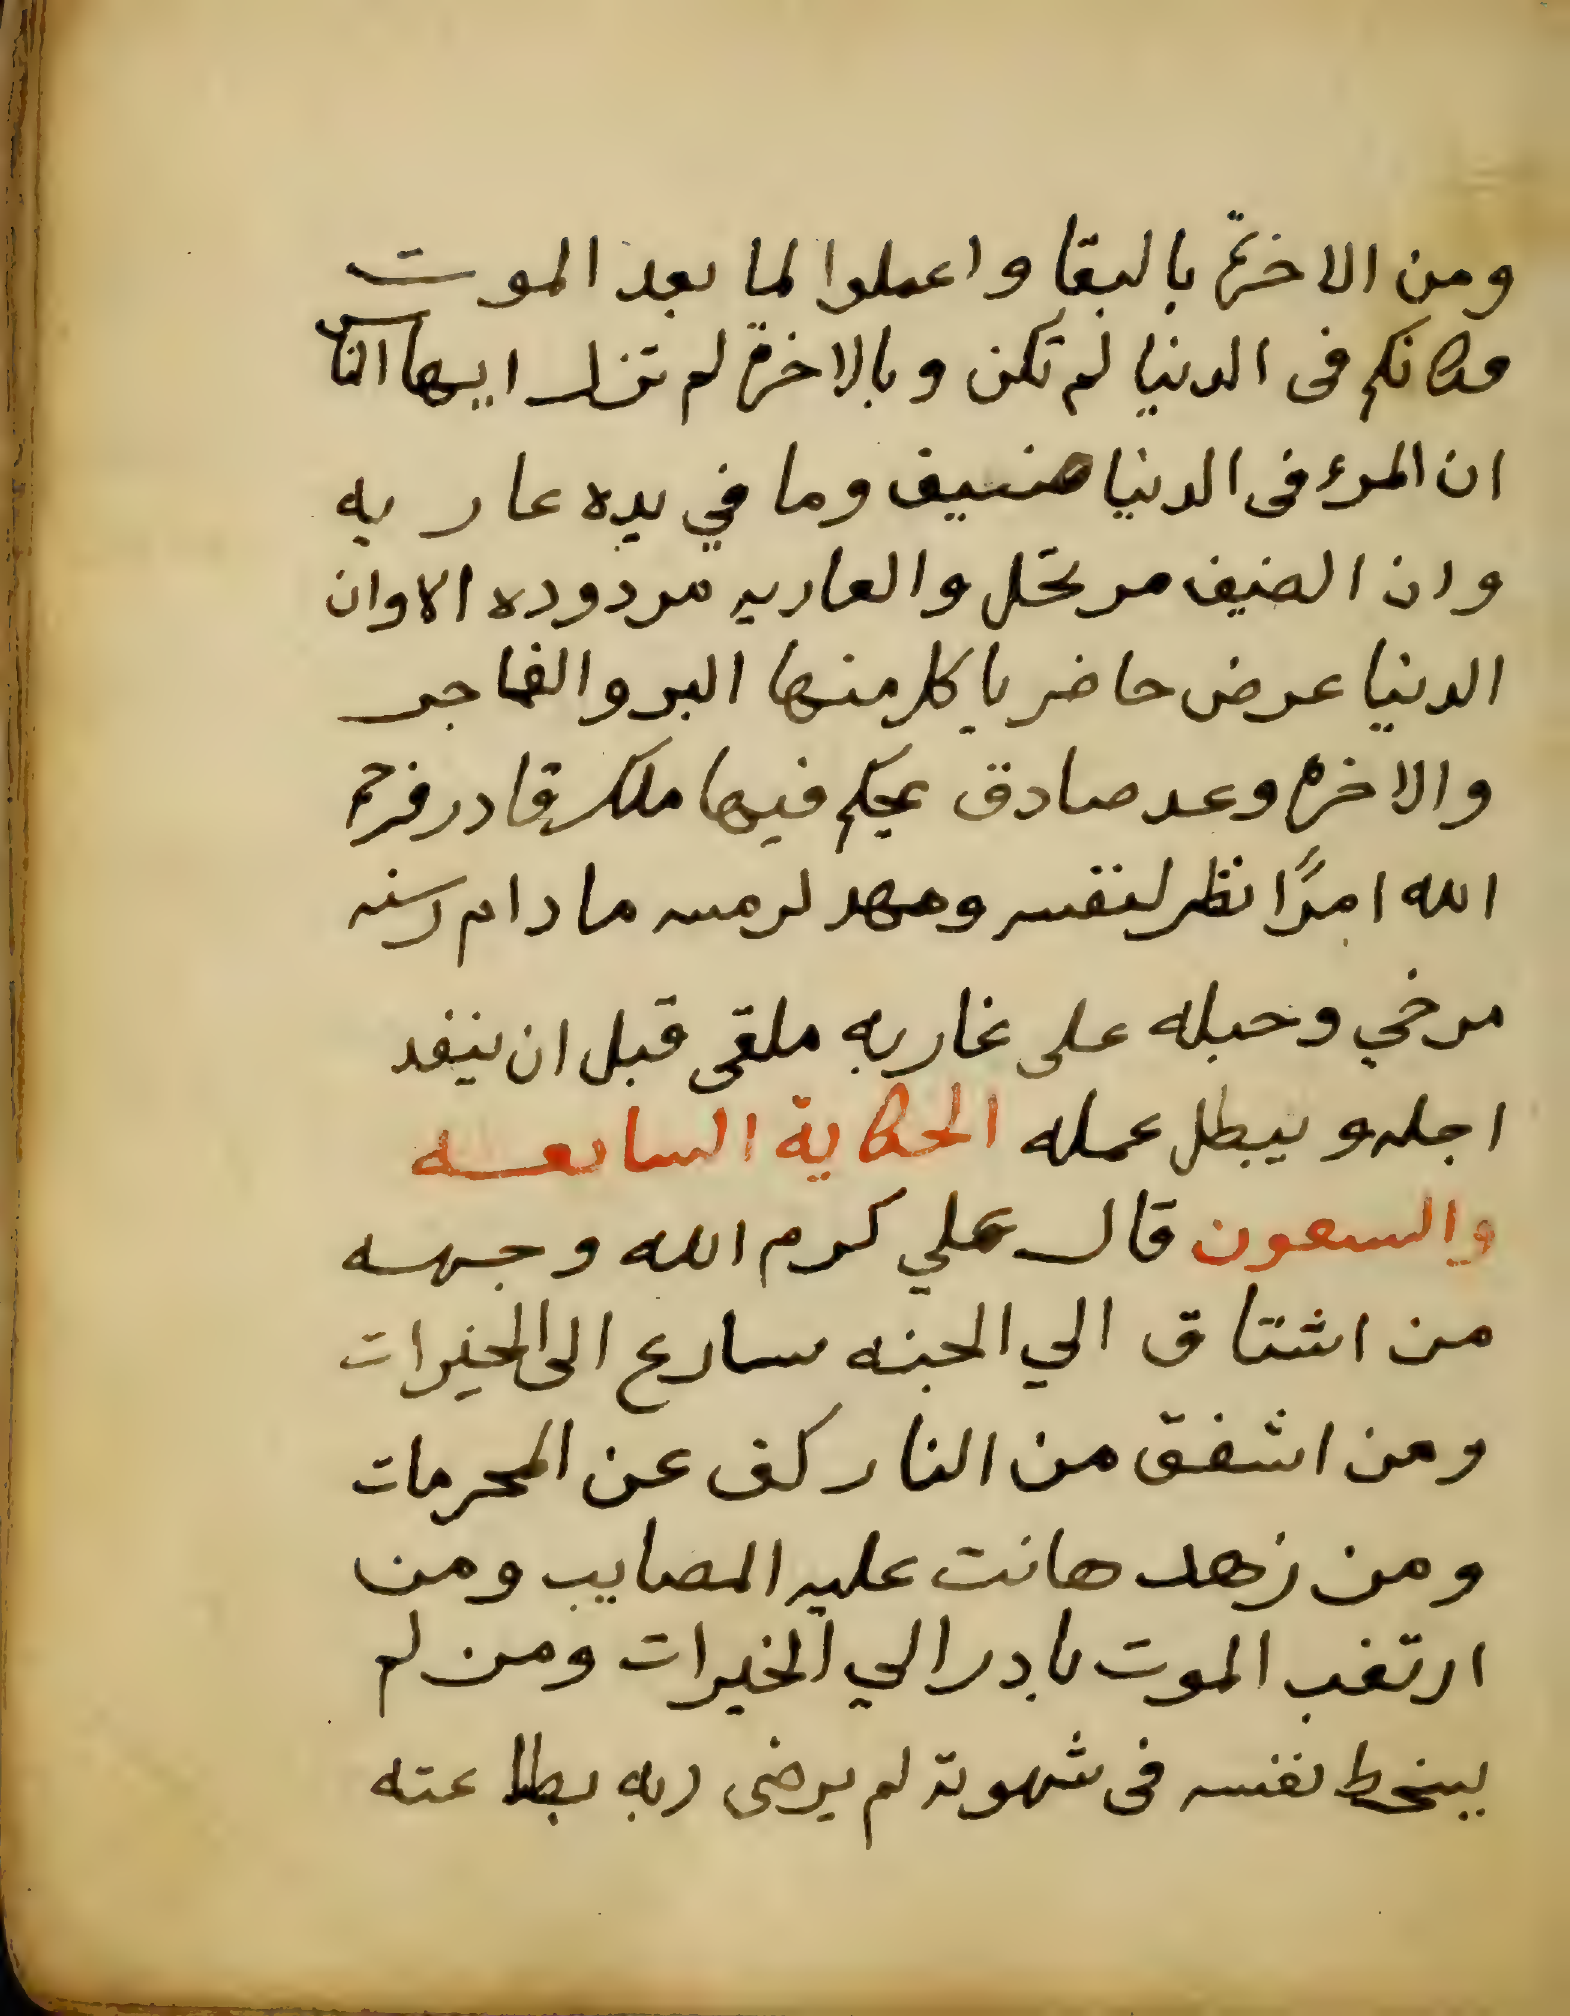 ومن الاخرة بالبقا واعملوا لما بعد الموت
فكانكم فى الدنيا لم تكن وبالاخرة لم تزل ايها الناس
ان المرء فى الدنيا ضيف وما في يده عاريه
وان الضيف مرتحل والعاريه مردوده الا وان
الدنيا عرض حاضر ياكل منها البر والفاجر
والاخرة وعد صادق يحكم فيها ملك قادر فرحم
الله امرًا نظر لنفسه ومهد لرمسه ما دام رسنه
مرخي وحبله على غاربه ملقى قبل ان ينفد
اجله ويبطل عمله الحكاية السابعه
والسبعون قال علي كرم الله وجهه
من اشتاق الي الجنه سارع الى الخيرات
ومن اشفق من النار كف عن المحرمات
ومن زهد هانت عليه المصايب ومن
ارتقب الموت بادر الي الخيرات ومن لم
يسخط نفسه فى شهوته لم يرضى ربه بطاعته